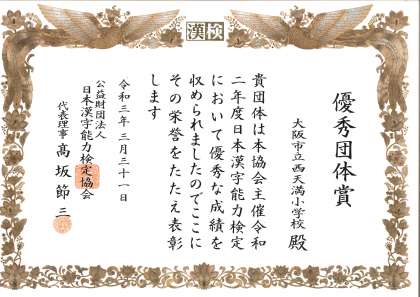 漢検
優秀団体賞
大阪市立西天満小学校 殿
貴団体は本協会主催令和
二年度日本漢字能力検定
において優秀な成績を
収められましたのでここに
その栄誉をたたえ表彰
します
令和三年三月三十一日
公益財団法人
日本漢字能力検定協会
代表理事 髙坂節三